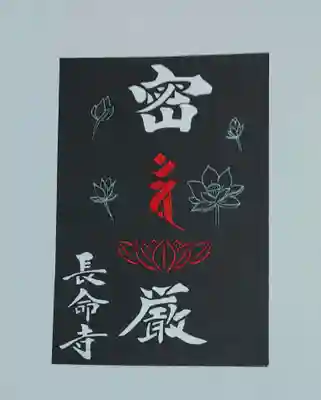 密厳
長命寺